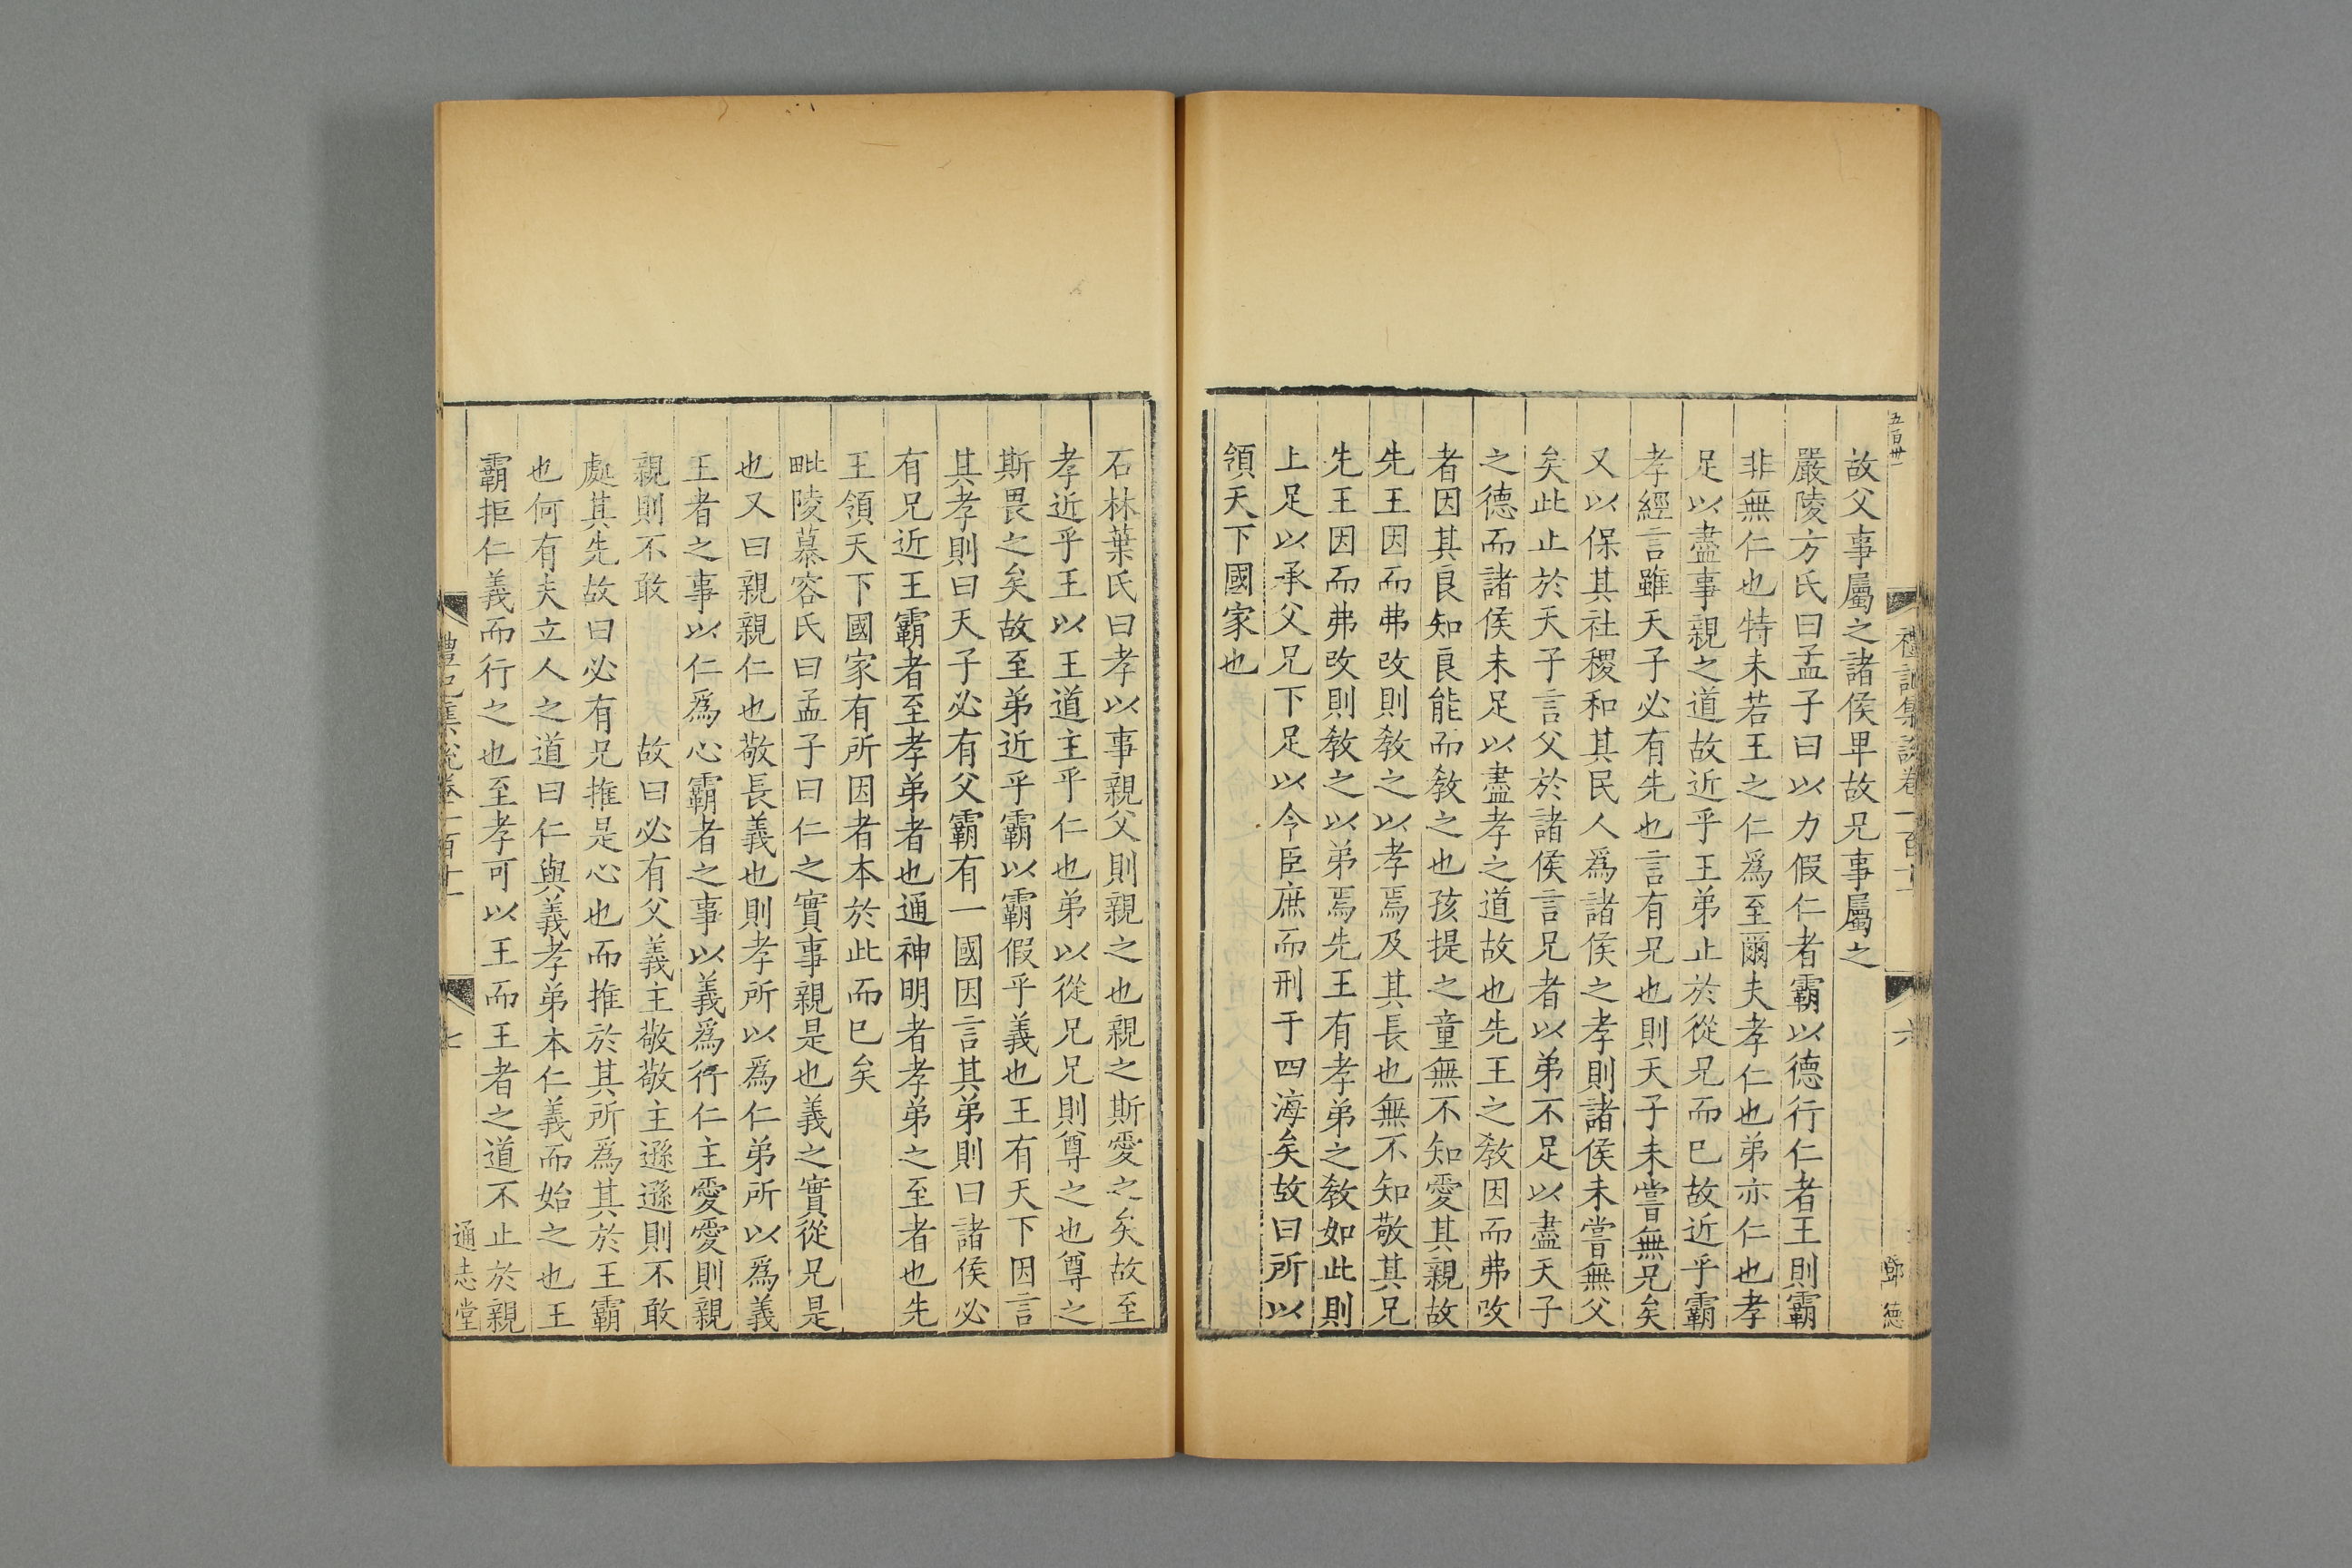 五百卅一
禮記集說卷一百十一
六
鄧德
故父事屬之諸侯卑故兄事屬之
嚴陵方氏曰孟子曰以力假仁者霸以德行仁者王則霸
非無仁也特未若王之仁爲至爾夫孝仁也弟亦仁也孝
足以盡事親之道故近乎王弟止於從兄而已故近乎霸
孝經言雖天子必有先也言有兄也則天子未嘗無兄矣
又以保其社稷和其民人爲諸侯之孝則諸侯未嘗無父
矣此止於天子言父於諸侯言兄者以弟不足以盡天子
之德而諸侯未足以盡孝之道故也先王之敎因而弗改
者因其良知良能而敎之也孩提之童無不知愛其親故
先王因而弗改則敎之以孝焉及其長也無不知敬其兄
先王因而弗改則敎之以弟焉先王有孝弟之敎如此則
上足以承父兄下足以令臣庶而刑于四海矣故曰所以
領天下國家也
石林葉氏曰孝以事親父則親之也親之斯愛之矣故至
孝近乎王以王道主乎仁也弟以從兄兄則尊之也尊之
斯畏之矣故至弟近乎霸以霸假乎義也王有天下因言
其孝則曰天子必有父霸有一國因言其弟則曰諸侯必
有兄近王霸者至孝弟者也通神明者孝弟之至者也先
王領天下國家有所因者本於此而已矣
毗陵慕容氏曰孟子曰仁之實事親是也義之實從兄是
也又曰親親仁也敬長義也則孝所以爲仁弟所以爲義
王者之事以仁爲心霸者之事以義爲行仁主愛愛則親
親則不敢故曰必有父義主敬敬主遜遜則不敢
處其先故曰必有兄推是心也而推於其所爲其於王霸
也何有夫立人之道曰仁與義孝弟本仁義而始之也王
霸拒仁義而行之也至孝可以王而王者之道不止於親
禮記集說卷一百十一
七
通志堂